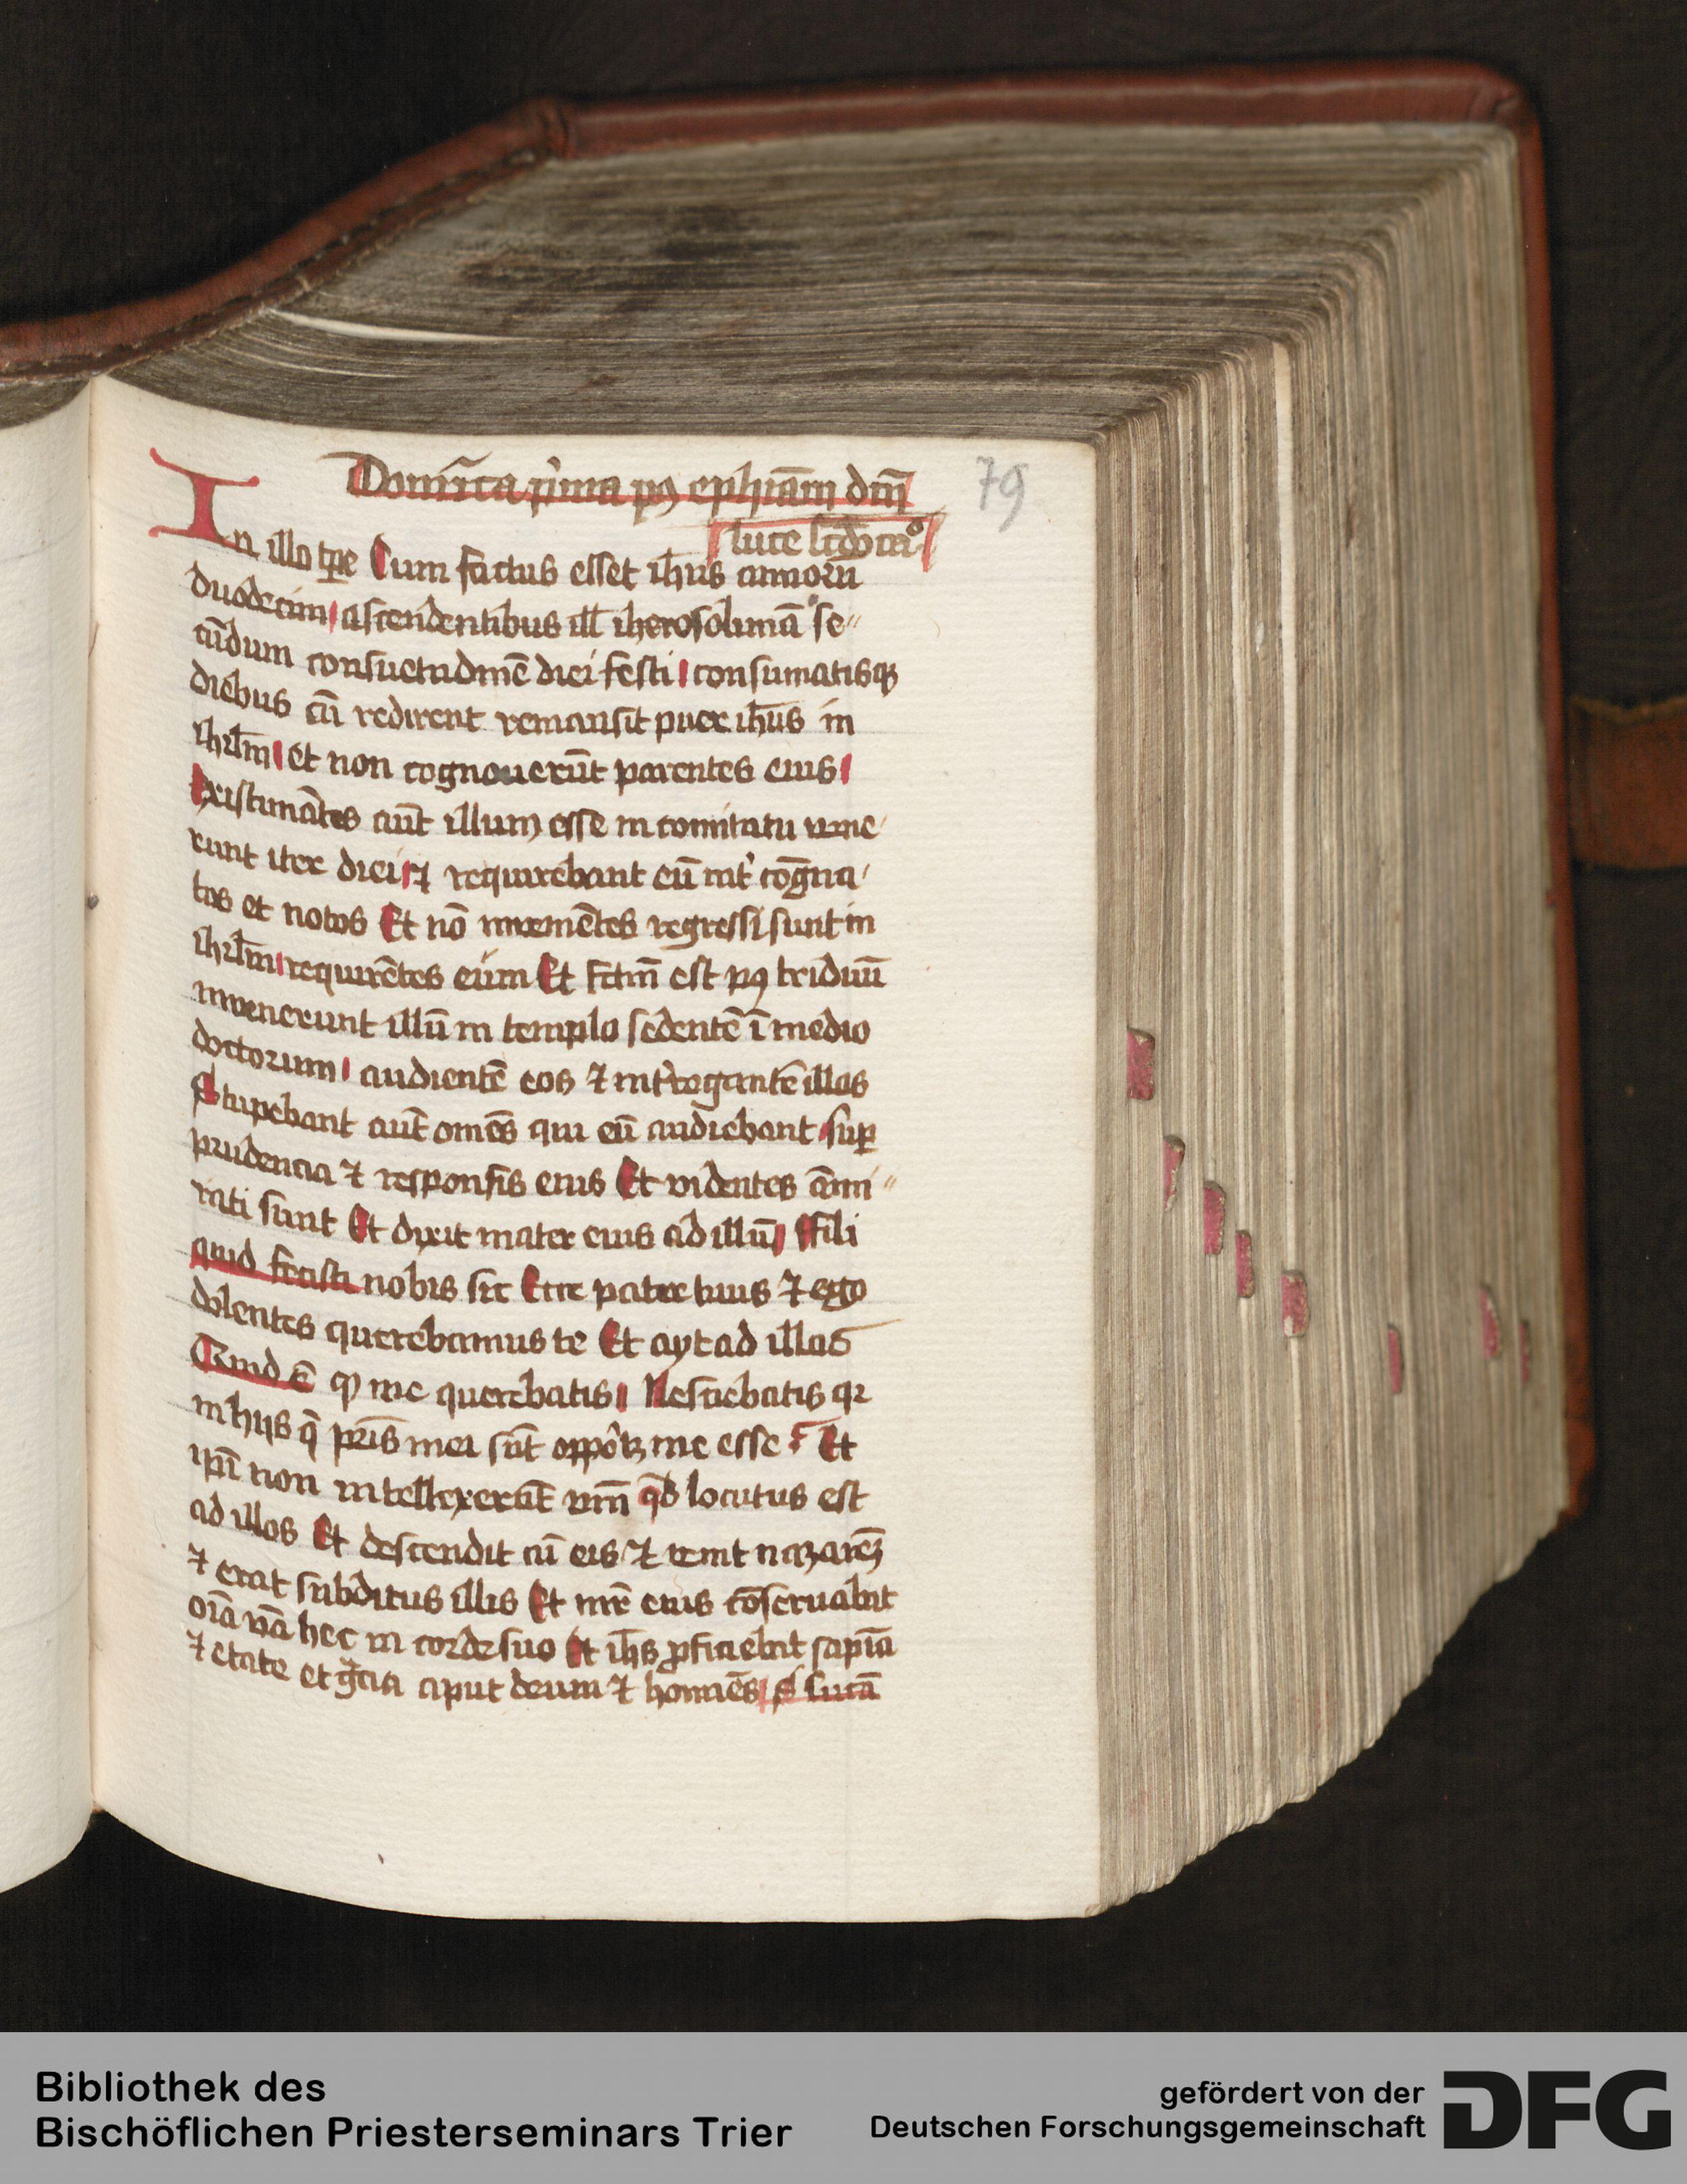 Domīca p̍ma pꝰ ephiām dn̄i
79
luce scḋo ca°
In illo tꝑe Cum factus esset ih̄us annoꝝ
duodecim ascendentibus ill̄ iherosolimā se〃
cūdum consuetudinē diei festi consumatisqꝫ
diebus cū redirent remansit puer ih̄us in
ihrl̄m et non cognouerūt parentes eius
Existimātes aūt illum esse in comitatu vene
runt iter diei ⁊ requirebant eū int̓ cōgna
tos et notos Et nō inuenientes regressi sunt in
ihrl̄m requirētes eum Et fc̄m est pꝰ triduū
inuenerunt illū in templo sedentē ī medio
doctorum audientē eos ⁊ int̓rogantē illos
Stupebant aūt om̄es qui eū audiebant suꝑ
prudencia ⁊ responsis eius Et videntes am̄i〃
rati sunt Et dixit mater eius ad illū Fili
quid fecisti nobis sic Ecce pater tuus ⁊ ego
dolentes querebamus te Et ayt ad illos
Quid ē ꝙ me querebatis Nesciebatis qꝛ
in hijs q̄ pr̄is mei sūt oppoꝫ me esse Et
ip̄i non intellexerūt vm̄ qd̄ locutus est
ad illos Et descendit cū eis ⁊ venit nazareꝫ
⁊ erat subditus illis Et mr̄ eius cōseruabat
oīa vā hec in corde suo Et ih̄s ꝓficiebat sapīa
⁊ etate et gr̄cia aput deum ⁊ homīēs S Lucā
Bibliothek des
Bischöflichen Priesterseminars Trier
gefördert von der
Deutschen Forschungsgemeinschaft
DFG